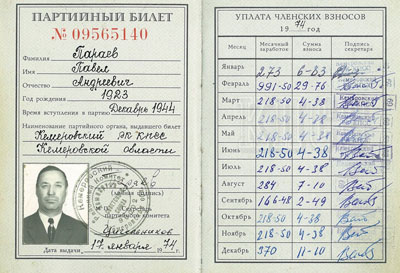 ПАРТИЙНЫЙ БИЛЕТ
№ 09565140
Фамилия Параев
Имя Павел
Отчество Андреевич
Год рождения 1923
Время вступления в партию Декабрь 1944
Наименование партийного органа, выдавшего билет
Кемеровский РК КПСС
Кемеровской области
(личная подпись)
Секретарь
партийного комитета
Дата выдачи 17 января 1974 г.
УПЛАТА ЧЛЕНСКИХ ВЗНОСОВ
1974
Месяц Месячный заработок Сумма взноса Подпись секретаря
Январь 273 6-83
Февраль 991-50 29-76
Март 218-50 4-38
Апрель 218-50 4-38
Май 218-50 4-38
Июнь 218-50 4-38
Июль 218-50 4-38
Август 284 7-10
Сентябрь 166-48 2-49
Октябрь 218-50 4-38
Ноябрь 218-50 4-38
Декабрь 370 11-10